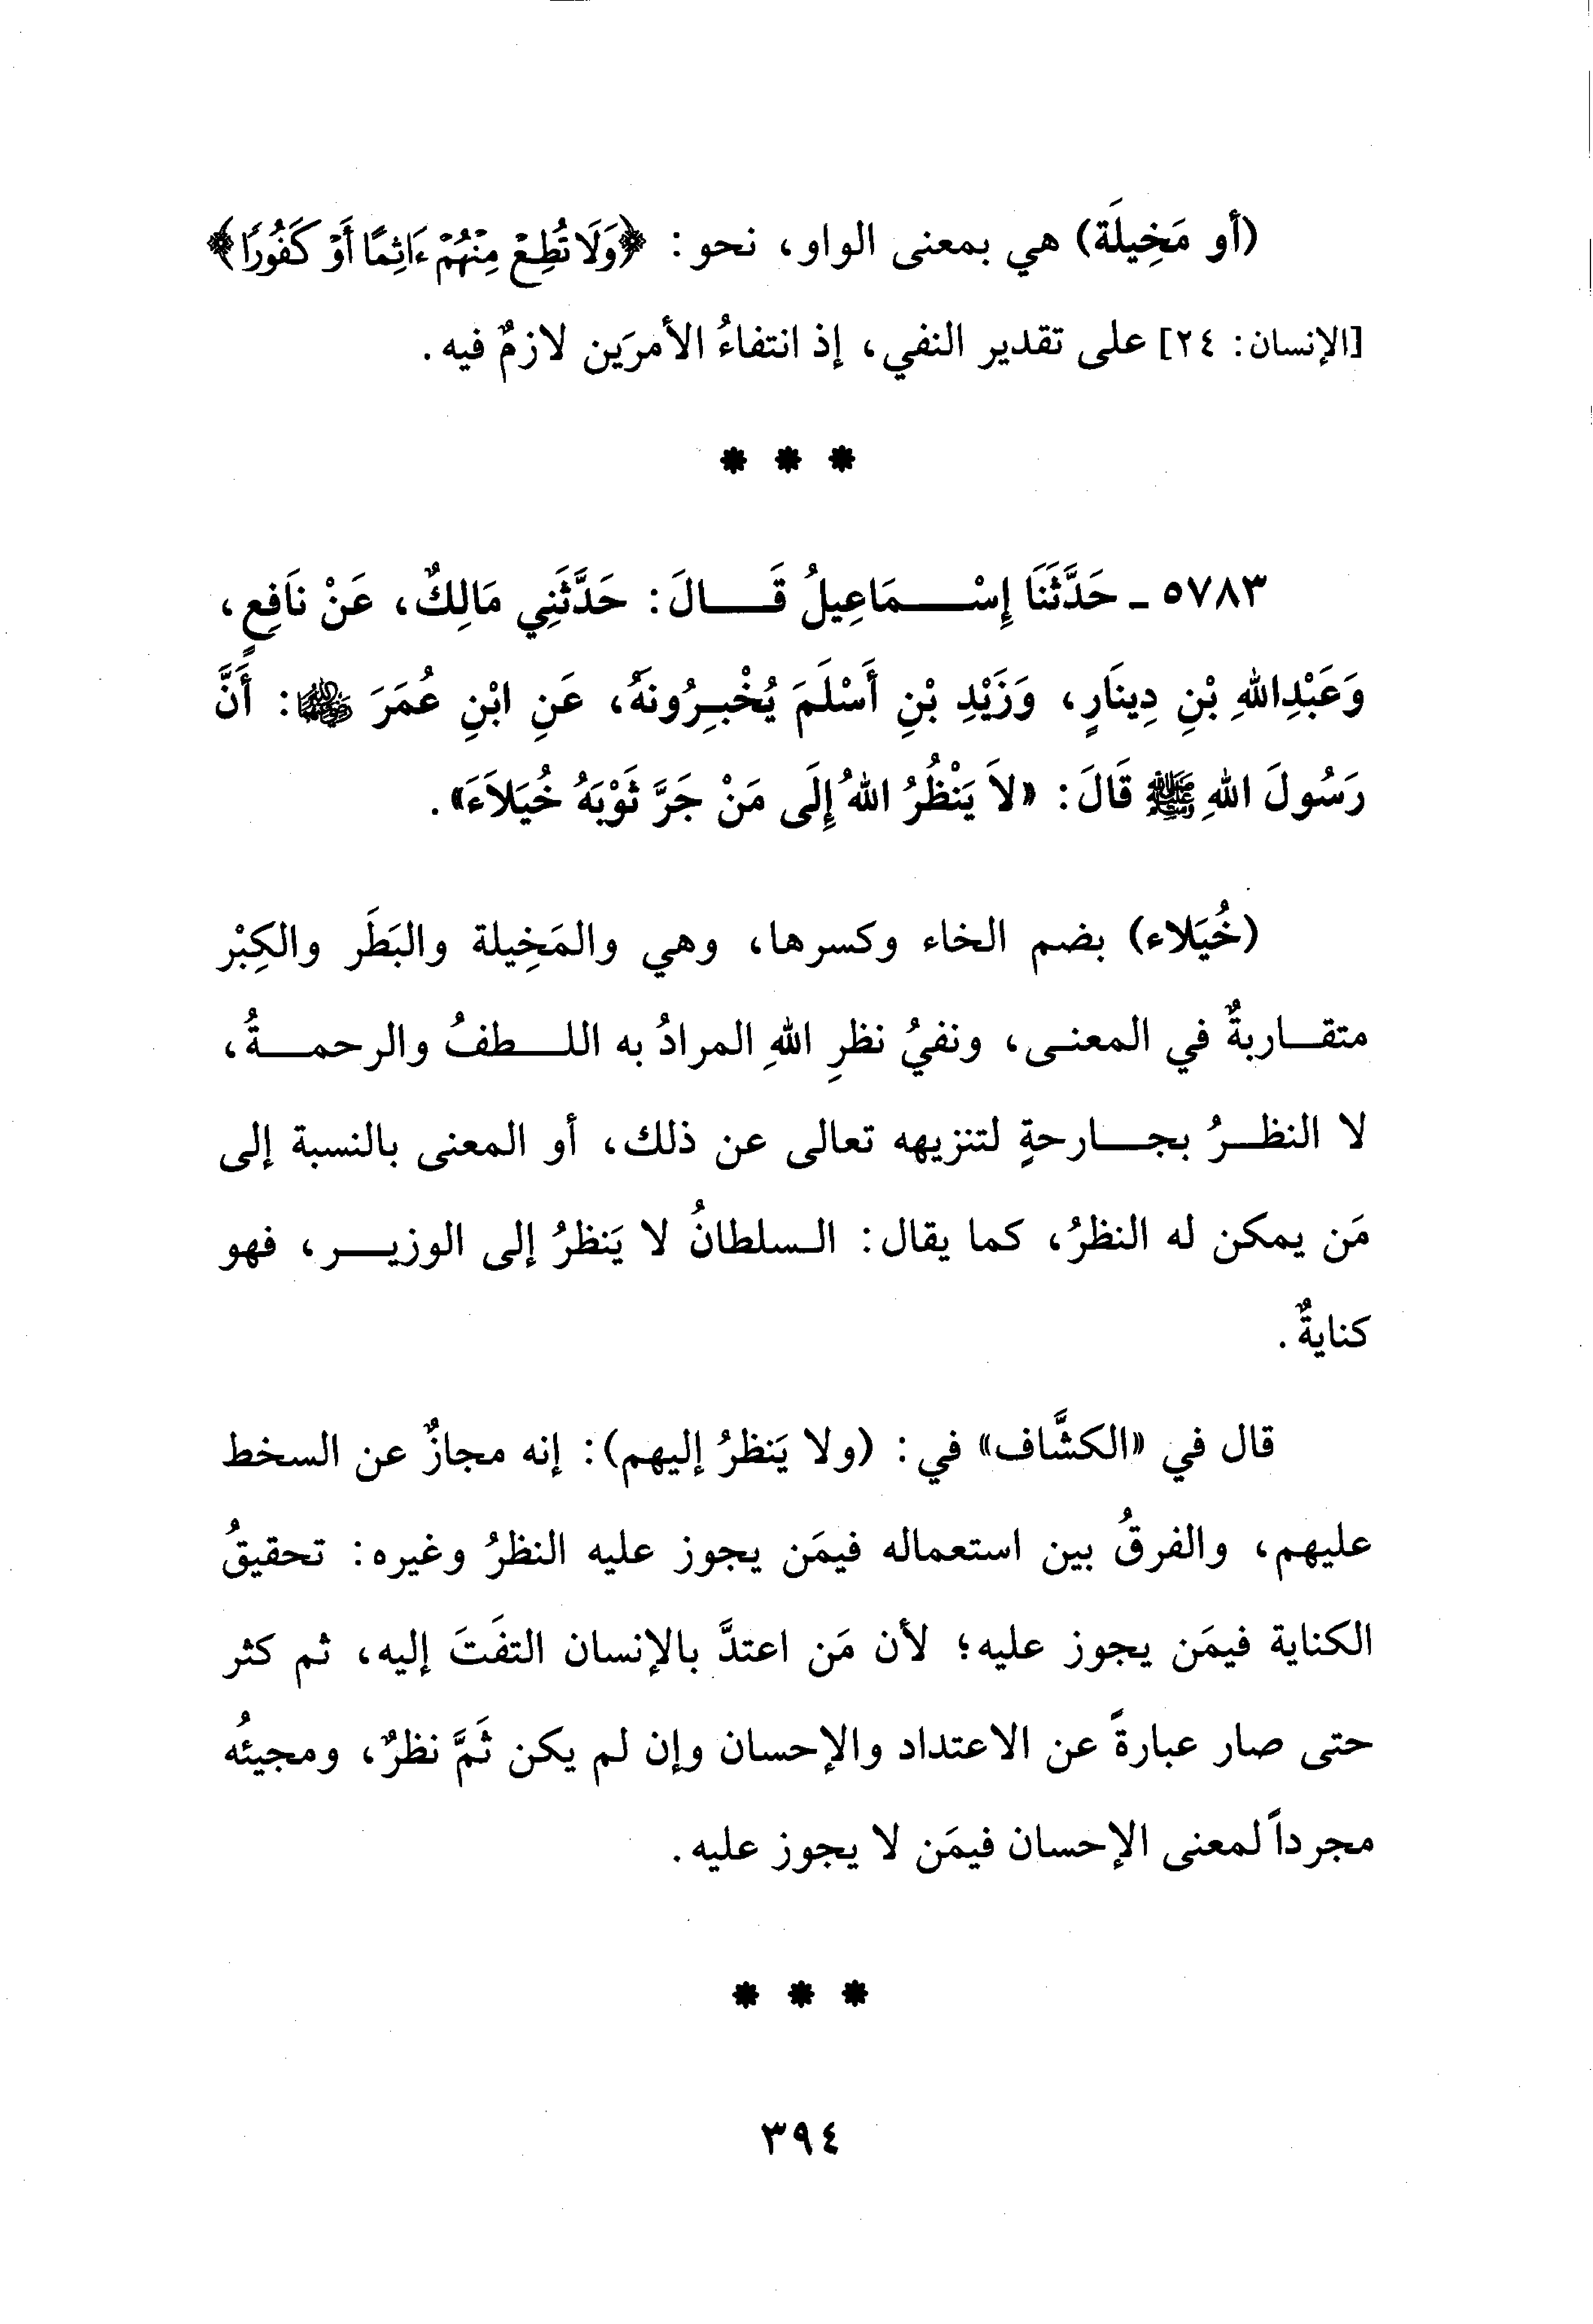 (أو مَخِيلَة) هي بمعنى الواو، نحو: ﴿وَلَا تُطِعْ مِنْهُمْ ءَاثِمًا أَوْ كَفُورًا﴾
[الإنسان: ٢٤] على تقدير النفي، إذ انتفاءُ الأمرَين لازمٌ فيه.
* * *
٥٧٨٣ ـ حَدَّثَنَا إِسْمَاعِيلُ قَالَ: حَدَّثَنِي مَالِكٌ، عَنْ نَافِعٍ،
وَعَبْدِاللهِ بْنِ دِينَارٍ، وَزَيْدِ بْنِ أَسْلَمَ يُخْبِرُونَهُ، عَنِ ابْنِ عُمَرَ ﵁: أَنَّ
رَسُولَ اللهِ ﷺ قَالَ: «لاَ يَنْظُرُ اللهُ إِلَى مَنْ جَرَّ ثَوْبَهُ خُيَلاَءَ».
(خُيَلاء) بضم الخاء وكسرها، وهي والمَخِيلة والبَطَر والكِبْر
متقاربةٌ في المعنى، ونفيُ نظرِ اللهِ المرادُ به اللطفُ والرحمةُ،
لا النظرُ بجارحةٍ لتنزيهه تعالى عن ذلك، أو المعنى بالنسبة إلى
مَن يمكن له النظرُ، كما يقال: السلطانُ لا يَنظرُ إلى الوزير، فهو
كنايةٌ.
قال في «الكشَّاف» في: (ولا يَنظرُ إليهم): إنه مجازٌ عن السخط
عليهم، والفرقُ بين استعماله فيمَن يجوز عليه النظرُ وغيره: تحقيقُ
الكناية فيمَن يجوز عليه؛ لأن مَن اعتدَّ بالإنسان التفَتَ إليه، ثم كثر
حتى صار عبارةً عن الاعتداد والإحسان وإن لم يكن ثَمَّ نظرٌ، ومجيئُه
مجرداً لمعنى الإحسان فيمَن لا يجوز عليه.
* * *
٣٩٤